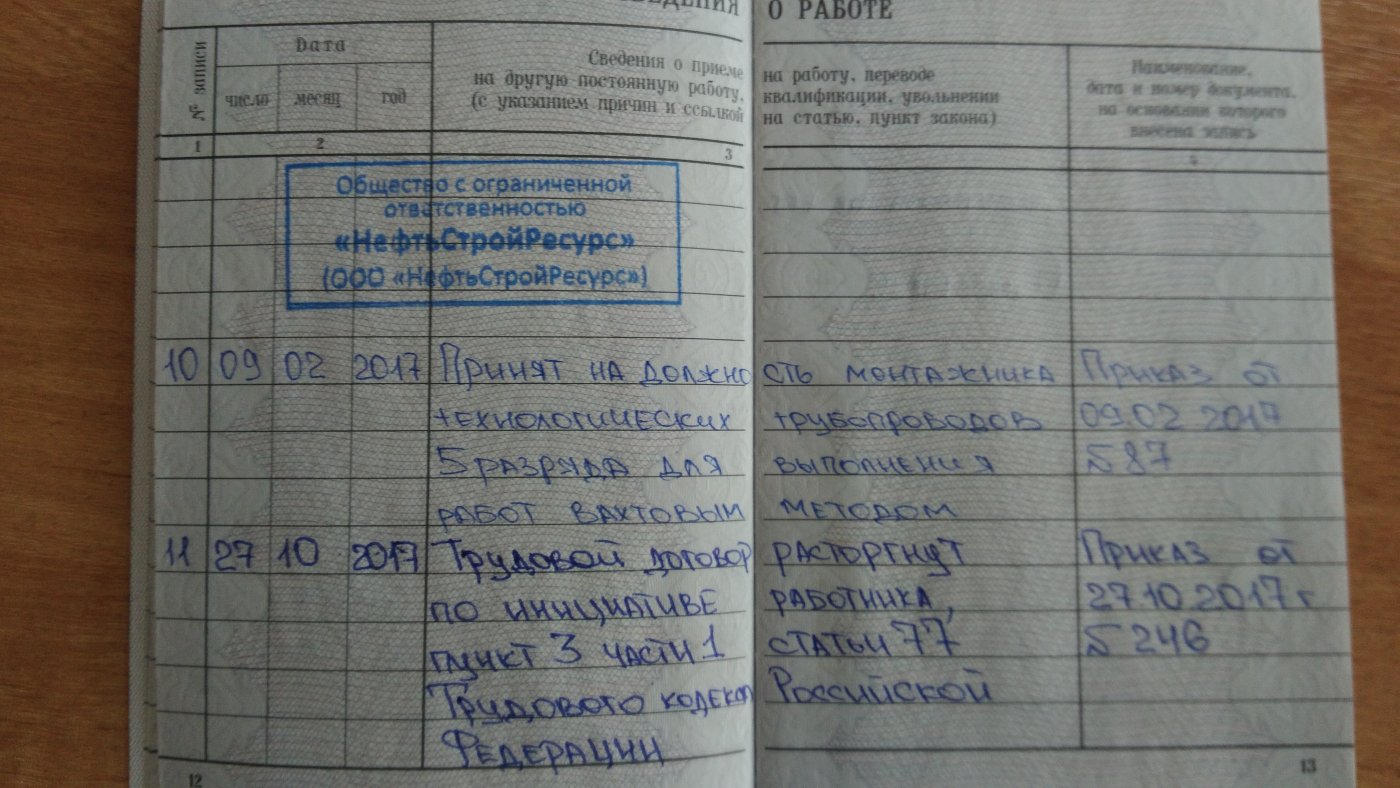 ВЕДЕНИЯ О РАБОТЕ
№ записи
Дата
число месяц год
Сведения о приеме на работу, переводе
на другую постоянную работу, квалификации, увольнении
(с указанием причин и ссылкой на статью, пункт закона)
Наименование,
дата и номер документа,
на основании которого
внесена запись
1 2 3 4
Общество с ограниченной
ответственностью
«НефтьСтройРесурс»
(ООО «НефтьСтройРесурс»)
10 09 02 2017 Принят на должность монтажника Приказ от
технологических трубопроводов 09.02 2017
5 разряда для выполнения № 87
работ вахтовым методом
11 27 10 2017 Трудовой договор расторгнут Приказ от
по инициативе работника, 27.10.2017 г
пункт 3 части 1 статьи 77 № 246
Трудового кодекса Российской
Федерации
12 13